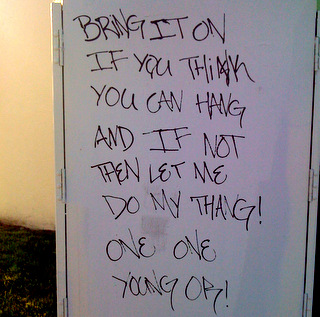 BRING IT ON
IF YOU THINK
YOU CAN HANG
AND IF NOT
THEN LET ME
DO MY THANG!
ONE ONE
YOUNG OR!